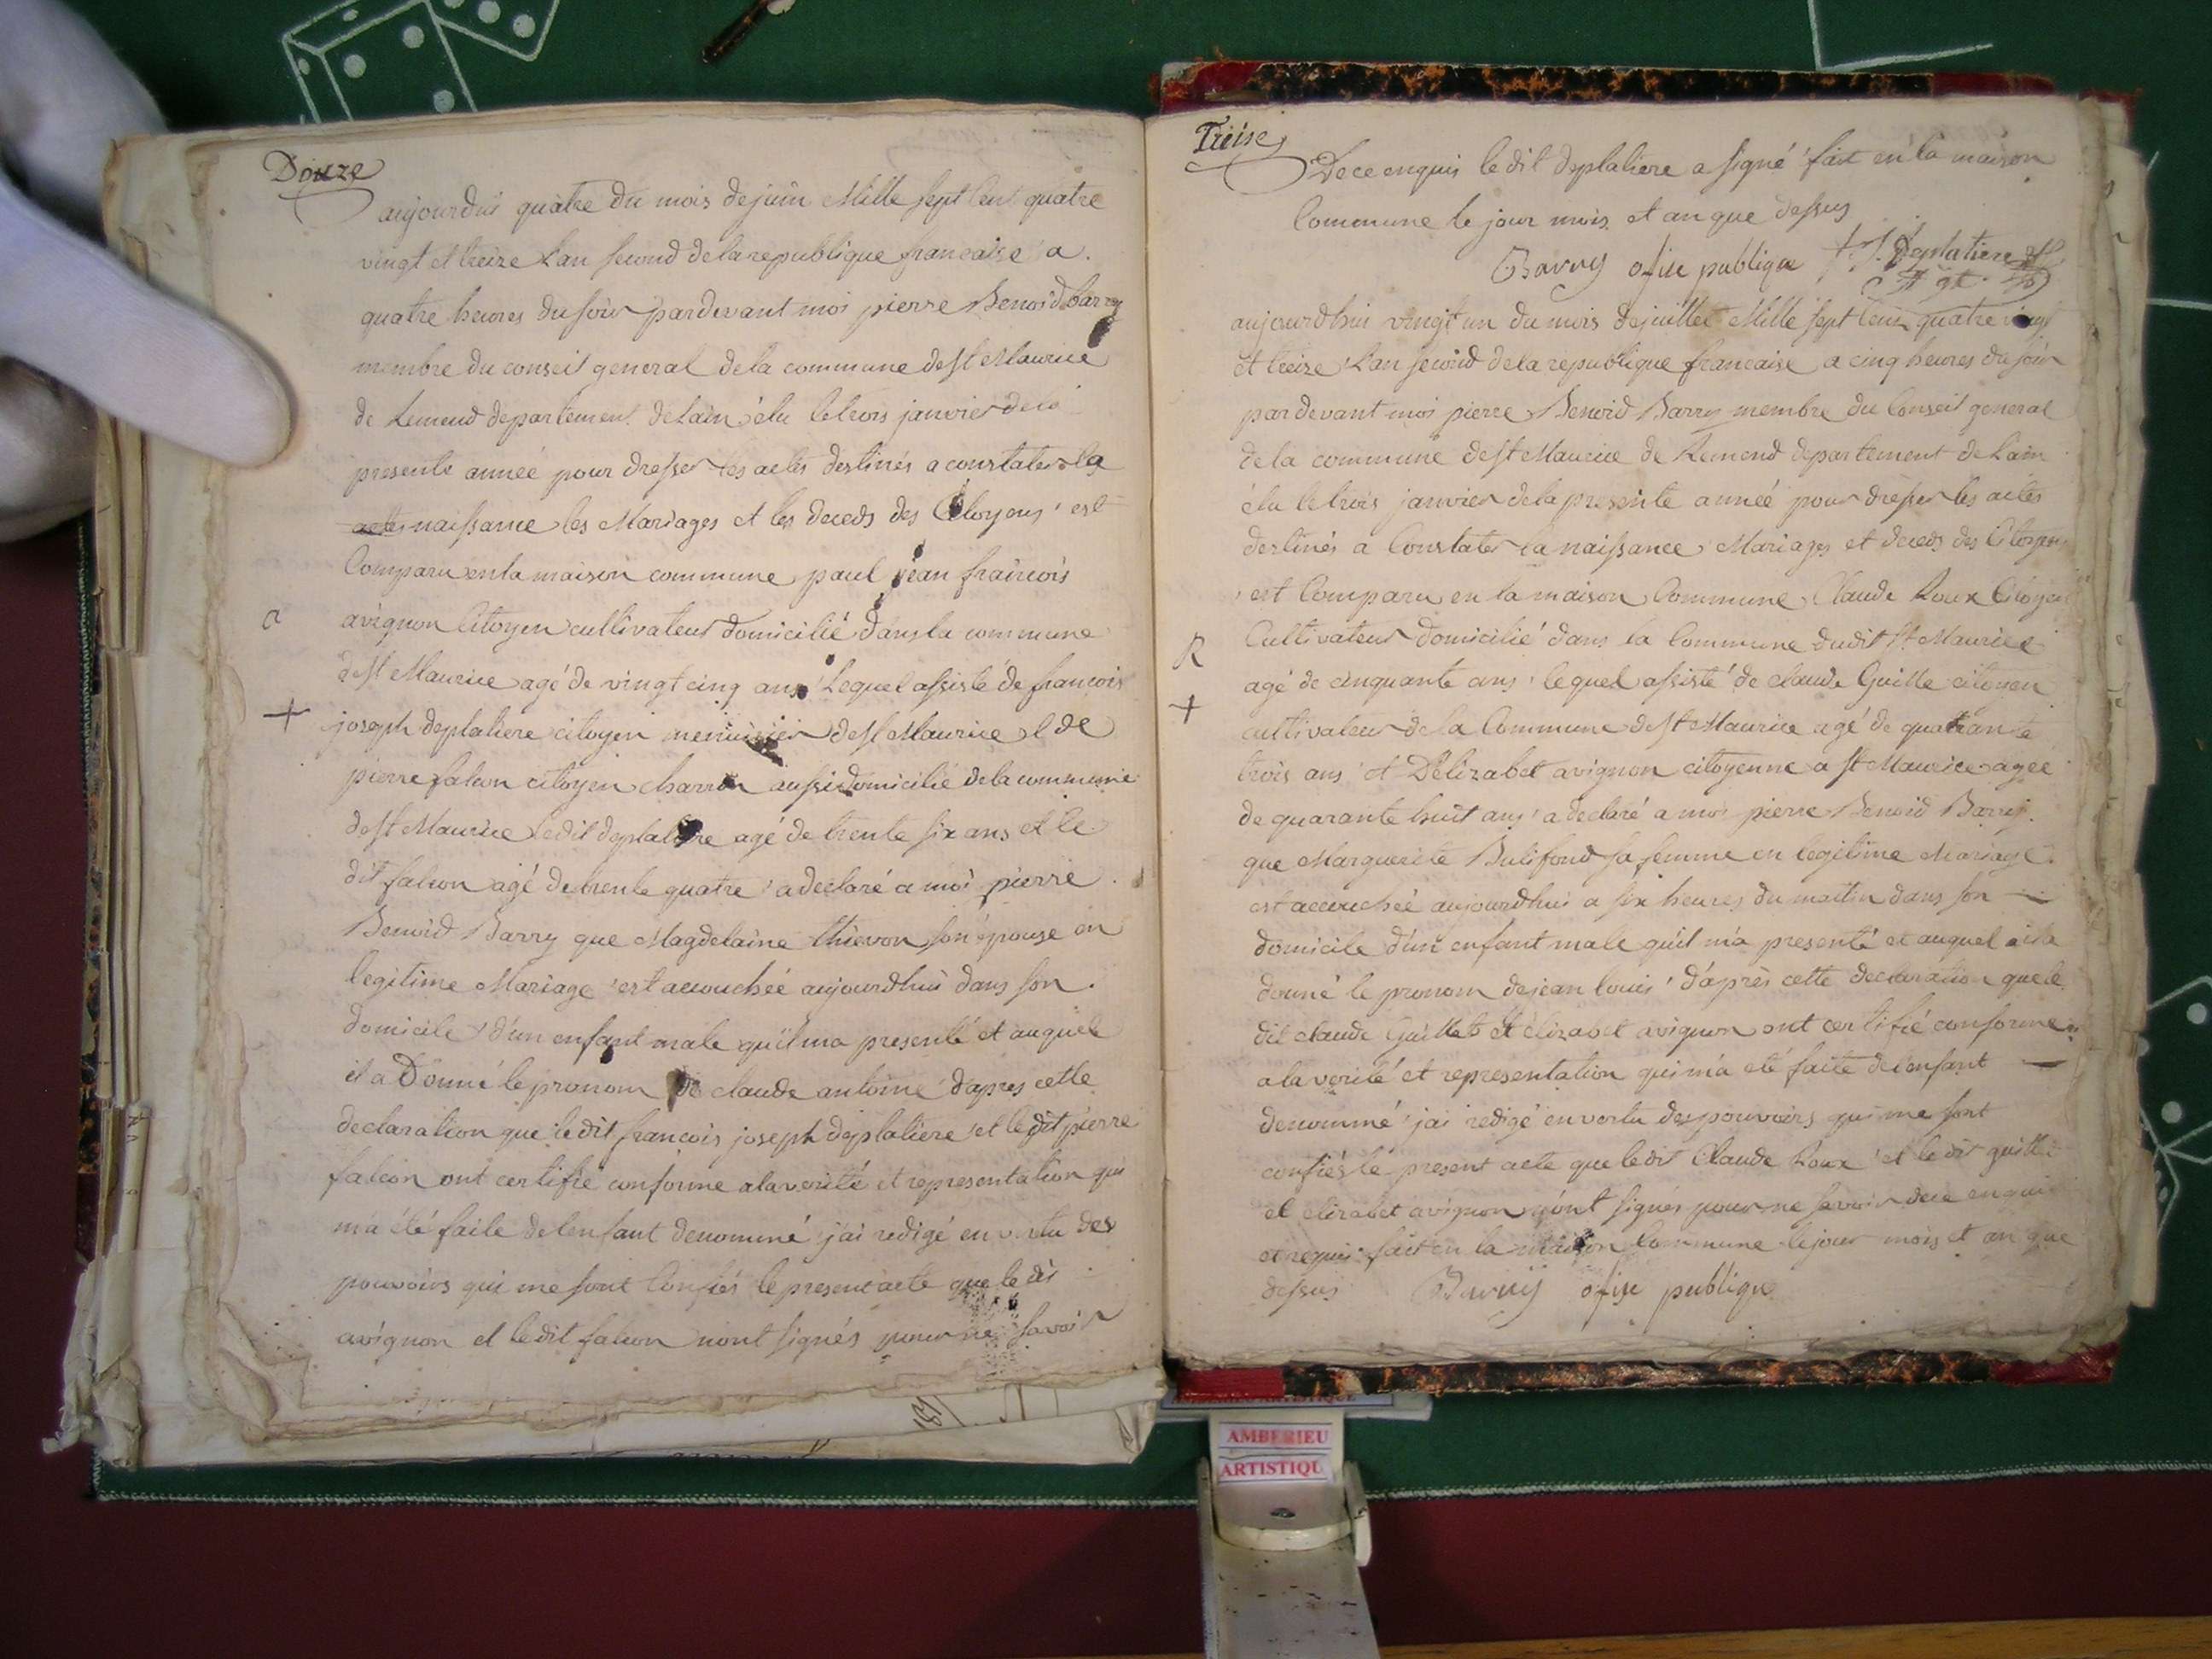 Douze
aujourdui quatre du mois de juin Mille sept Cent quatre
vingt et treize Lan second de la republique francaise a
quatre heures du soir pardevant moi pierre Benoid Barry
membre du conseil general de la commune de st Maurice
de Remend departement de Lain élu le trois janvier de la
presente année pour dresser les actes destinés a constater la
actes naissance les Mariages et les deceds des Citoyens est
Comparu en la maison commune paul jean francois
a
avignon Citoyen cultivateur domicilié dans la commune
de st Maurice agé de vingt cinq ans Lequel assisté de francois
+
joseph deplatiere citoyen menuisier de st Maurice et de
pierre falcon citoyen charron aussi domicilié de la commune
de st Maurice ledit deplatiere agé de trente six ans et le
dit falcon agé de trente quatre a declaré a moi pierre
Benoid Barry que Magdelaine thievon son épouse en
legitime Mariage est accouchée aujourdhui dans son
domicile d'un enfant male quil ma presenté et auquel
il a Donné le pronom de claude antoine dapres cette
declaration que le dit francois joseph deplatiere et le dit pierre
falcon ont certifié conforme a la verité et representation qui
m'a été faite de lenfant denommé j'ai redigé en vertu des
pouvoirs qui me sont Confiés le present acte que le dit
avignon et le dit falcon nont signés pour ne savoir
Treise
De ce enquis le dit deplatiere a signé fait en la maison
Commune le jour mois et an que dessus
Barry ofise publique f. J. Deplatiere
aujourdhui vingt un du mois de juillet Mille sept Cent quatre vingt
et treize Lan second de la republique francaise a cinq heures du soir
par devant moi pierre Benoid Barry membre du Conseil general
de la commune de st Maurice de Remend departement de Lain
élu le trois janvier de la presente année pour dresser les actes
destinés a Constater la naissance Mariages et deceds des Citoyens
est Comparu en la maison Commune Claude Roux Citoyen
R
Cultivateur domicilié dans la Commune dudit st Maurice
agé de cinquante ans lequel assisté de claude Guille citoyen
+
cultivateur de la Commune de st Maurice agé de quatrante
trois ans et Délizabet avignon citoyenne a st Maurice agee
de quarante huit ans a declaré a moi pierre Benoid Barry
que Marguerite Bulifond sa femme en legitime Mariage
est accouchée aujourdhui a six heures du matin dans son
domicile d'un enfant male qu'il m'a presenté et auquel il a
donné le pronom de jean louis d'après cette declaration que le
dit claude Guillet et élizabet avignon ont certifié conforme
a la verité et representation qui m'a eté faite de l'enfant
denommé j'ai redigé en vertu des pouvoirs qui me sont
confiés le present acte que le dit Claude Roux et le dit guillet
et elizabet avignon n'ont signés pour ne savoir de ce enquis
et requis fait en la maison Commune le jour mois et an que
dessus Barry ofise publique
AMBERIEU
ARTISTIQU